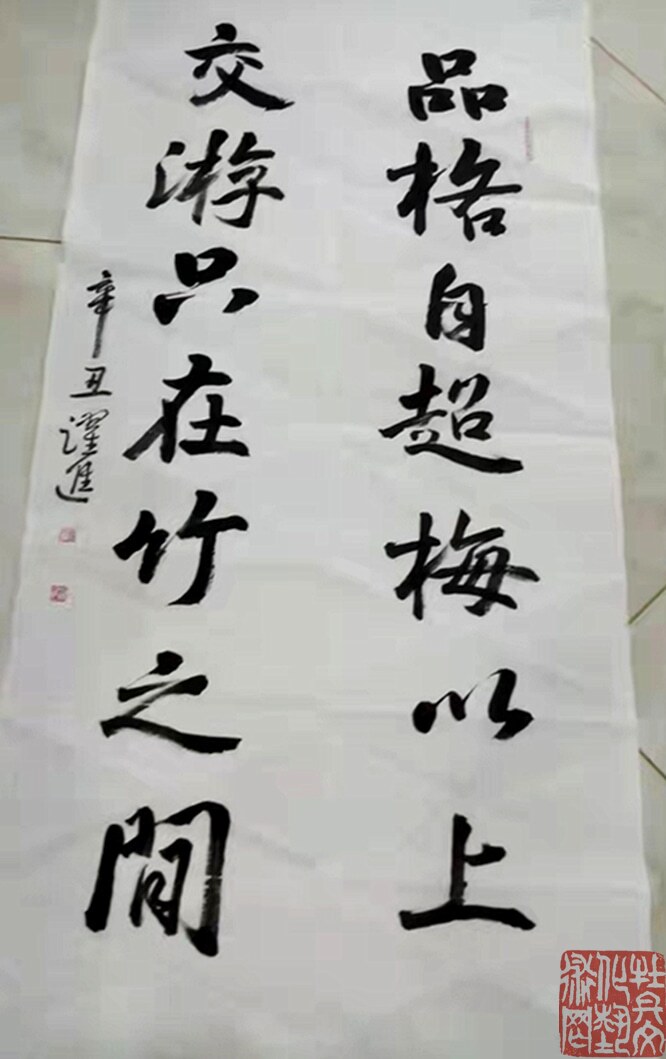 品格自超梅以上
交游只在竹之間
辛丑 躍進